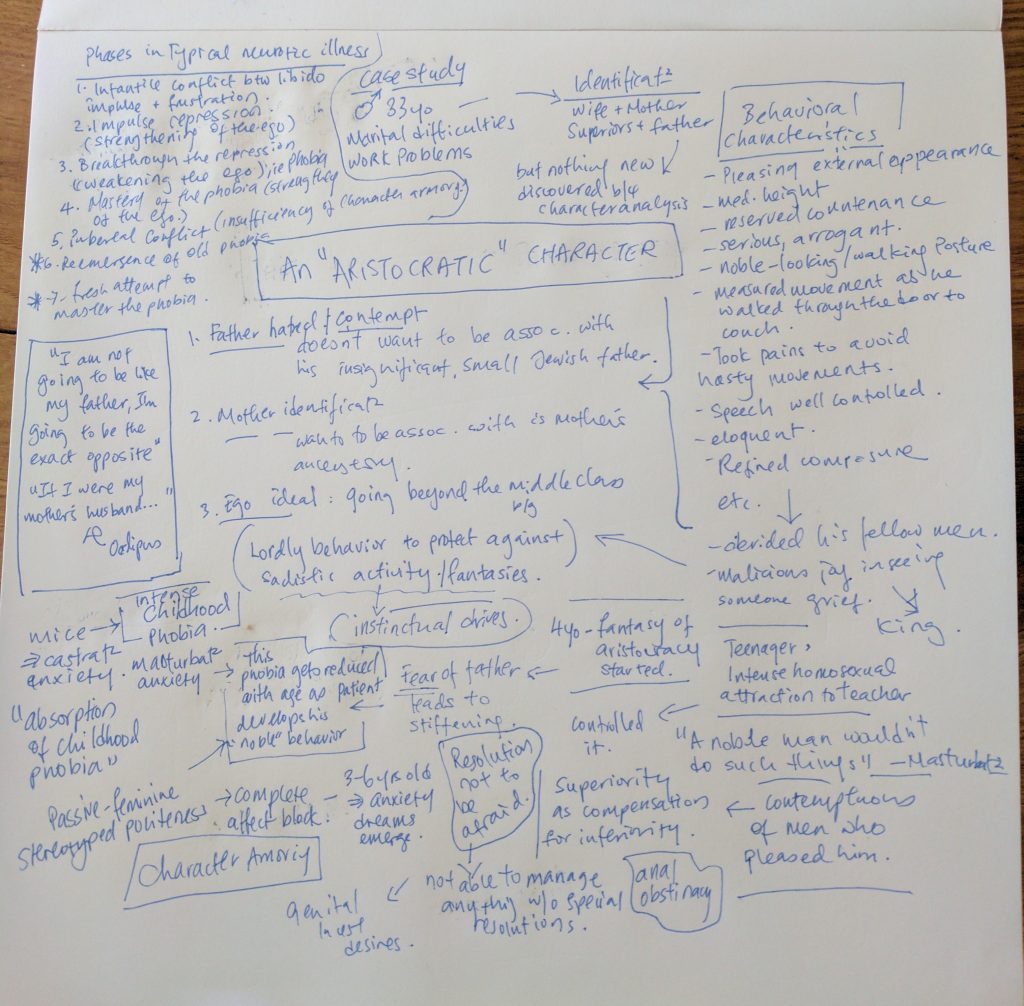 Phases in Typical neurotic illness
1. Infantile conflict btw libido
impulse + frustration.
2. Impulse repression.
(strengthening of the ego)
3. Breakthrough the repression
(weakening the ego), ie phobia
4. Mastery of the phobia (strength
of the ego.)
5. conflict (insufficiency of character armory)
*6. Reemergence of old phobia
* 7. fresh attempt to
master the phobia.
case study
♂ 33yo
Marital difficulties
work Problems
Identificatⁿ
Wife + Mother
Superiors + father
but nothing new
discovered b/4
character analysis
Behavioral
characteristics
- Pleasing external appearance
- med. height
- reserved countenance
- serious, arrogant.
- noble-looking/walking posture
- measured movement as he
walked through the door to
couch.
- Took pains to avoid
hasty movements.
- Speech well controlled.
- eloquent.
- Refined composure
etc.
- derided his fellow men.
- malicious joy in seeing
someone grief.
King.
An "ARISTOCRATIC" CHARACTER
1. Father hatred & contempt
doesn't want to be assoc. with
his insignificant, small Jewish father.
2. Mother identificatⁿ
wants to be assoc. with is mother's
ancestry.
3. Ego ideal: going beyond the middle class
b/g
"I am not
going to be like
my father, I'm
going to be the
exact opposite"
"If I were my
mother's husband..."
Œ
Oedipus
(Lordly behavior to protect against
sadistic activity/fantasies.)
instinctual drives.
intense
childhood
phobia.
mice →
⇒ castratⁿ
anxiety.
masturbatⁿ
anxiety →
this
phobia gets reduced
with age as patient
develops his
"noble" behavior
"absorption
of childhood
phobia"
Fear of father
leads to
stiffening.
4yo - fantasy of
aristocracy
started.
Teenager,
Intense homosexual
attraction to teacher
controlled
it.
"A noble man wouldn't
do such things" - Masturbatⁿ
← contemptuous
of men who
pleased him.
Superiority
as compensation
for inferiority.
Resolution
not to
be
afraid.
Passive-feminine
stereotyped politeness
→ complete
affect block.
- 3-6 yrs old
⇒ anxiety
dreams
emerge.
Character Amoriy
not able to manage
anything w/o special
resolutions.
anal
obstinacy
genital
incest
desires.